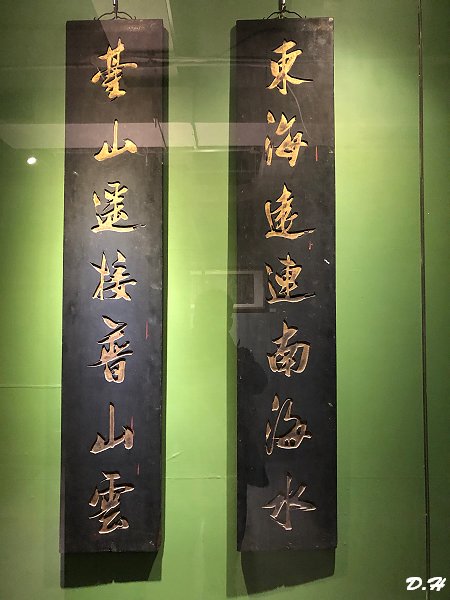 東海遠連南海水
臺山遥接普山雲
D.H